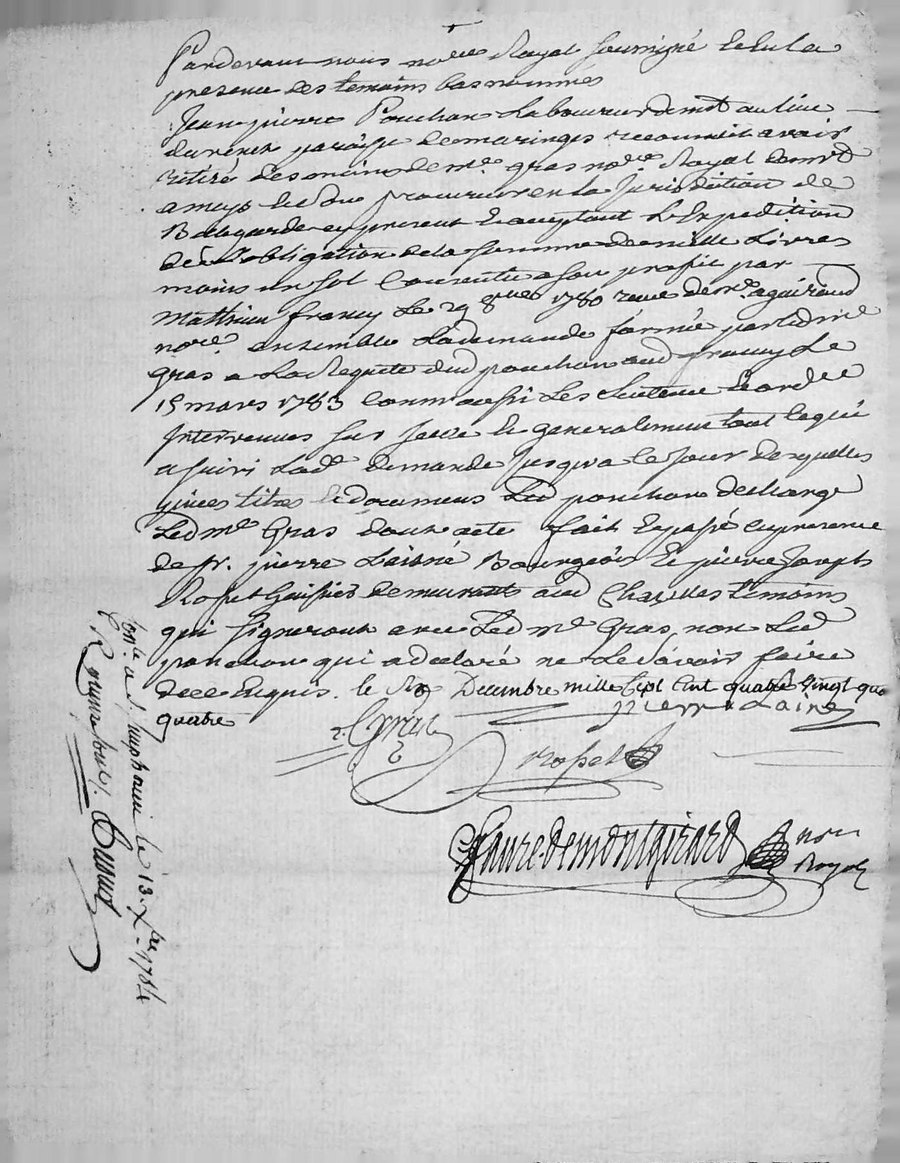 Pardevant nous no.re Royal soussigné et en la
presence des temoins bas nommés
Jean pierre Ponchon Laboureur dem.t au lieu
paroisse de maringes reconnoit avoir
retiré des mains de m.e gras no.re Royal dem.t
a meys et du procureur en la Jurisdiction de
Bellegarde cy present et aceptant L'Expedition
de L'obligation de la somme de mille Livres
moins un sol Consentie a son profit par
Mathieu francy Le 29 8bre 1780 reçue de m.e aguiraud
no.re ensemble La demande formée par led m.e
gras a La Requete dud ponchon aud francy Le
15 mars 1783 Comme aussi Les Sentence et ord.ce
Intervenues sur Icelle et generalement tout ce qui
a suivi Lad.e demande Jusqu'a ce Jour desquelles
pieces titres et documens Led ponchon decharge
Led m.e Gras dont acte fait et passé en presence
de sr. pierre Lainé Bourgeois et pierre Joseph
Rosset huissier demeurants aud temoins
qui signeront avec Led m.e Gras, non Led
ponchon qui a declaré ne Le Scavoir faire
de ce Enquis. le Decembre mille Sept Cent quatre vingt
quatre
Pierre Lainé
Gras
Rosset
Faure-demontgirard no.re
Royal
Con.lé a s.t simphorien le 13. Xbre 1784
R quinze sous